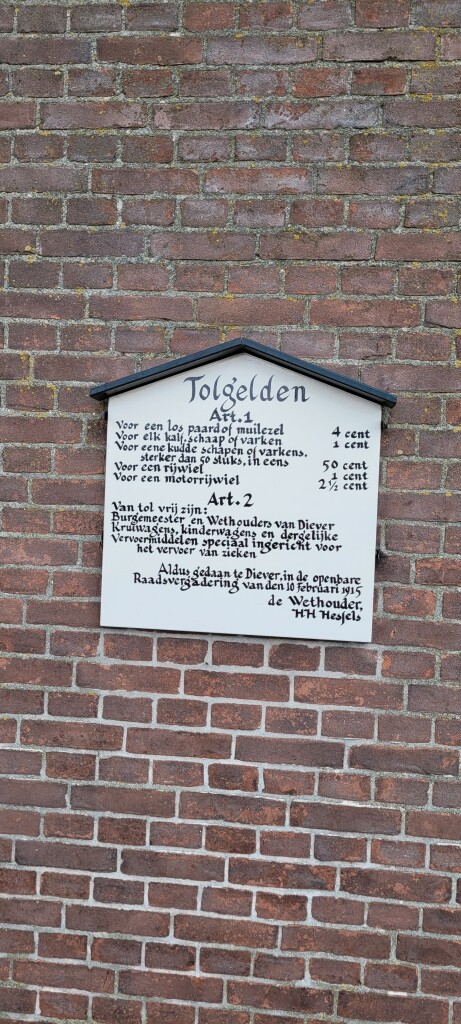 Tolgelden
Art. 1
Voor een los paard of muilezel 4 cent
Voor elk kalf, schaap of varken 1 cent
Voor eene kudde schapen of varkens,
sterker dan 50 stuks, in eens 50 cent
Voor een rijwiel 1 cent
Voor een motorrijwiel 2½ cent
Art. 2
Van tol vrij zijn:
Burgemeester en Wethouders van Diever
Kruiwagens, kinderwagens en dergelijke
Vervoermiddelen speciaal ingericht voor
het vervoer van zieken
Aldus gedaan te Diever, in de openbare
Raadsvergadering van den 10 februari 1915
de Wethouder,
HH Hessels